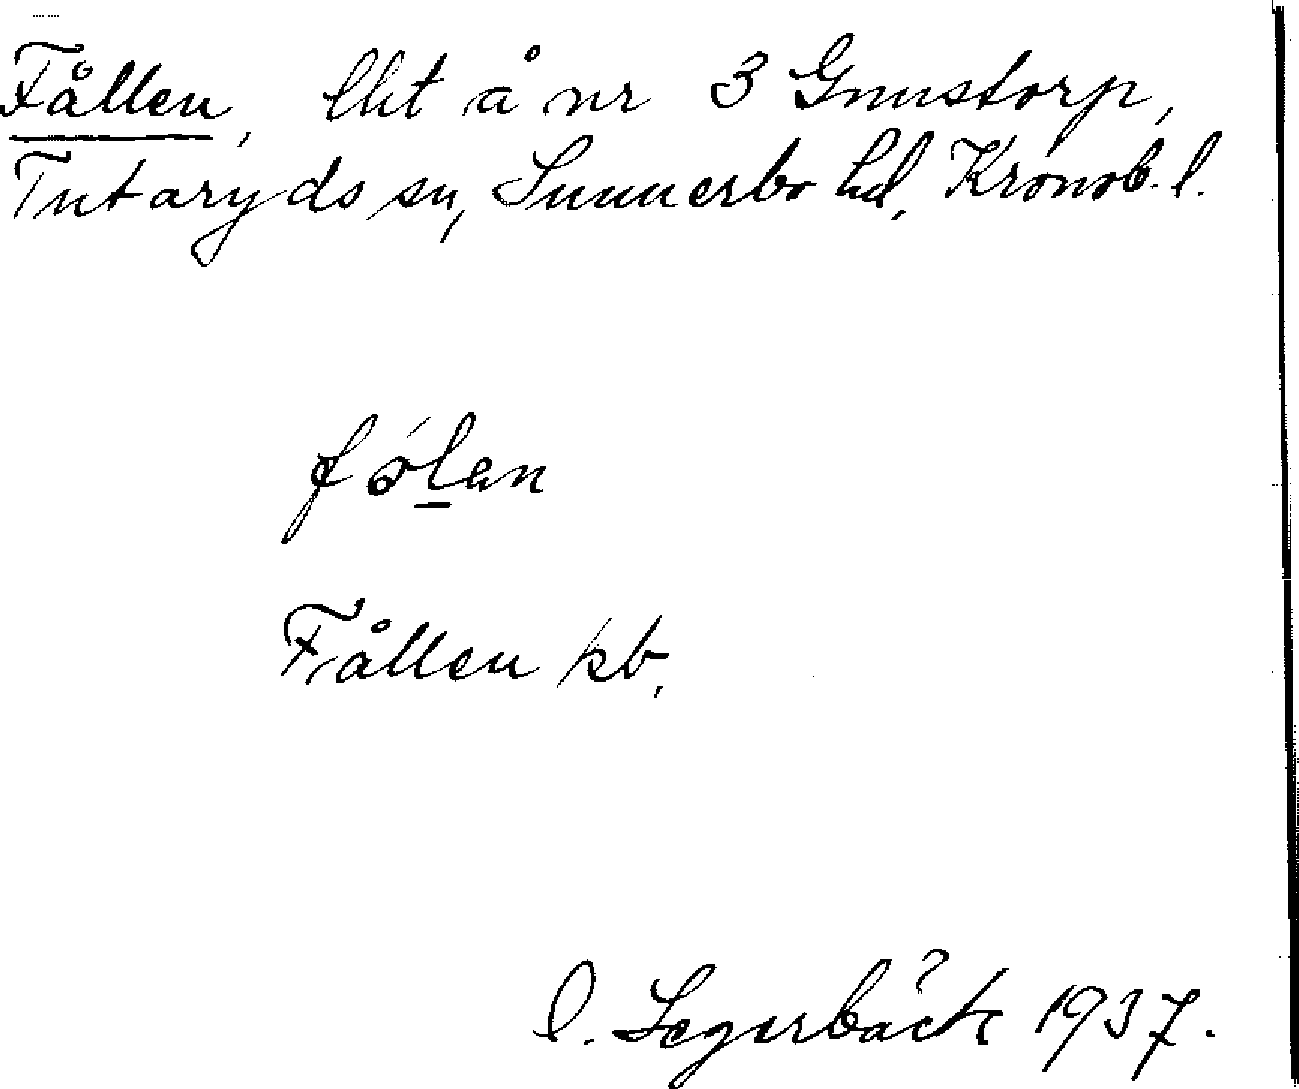 Fållen, lht å nr 3 Gnustorp,
Tutaryds sn, Sunnerbo hd, Kronob. l.
fó̵lan
Fållen kb,
O. Segerbäck 1937.